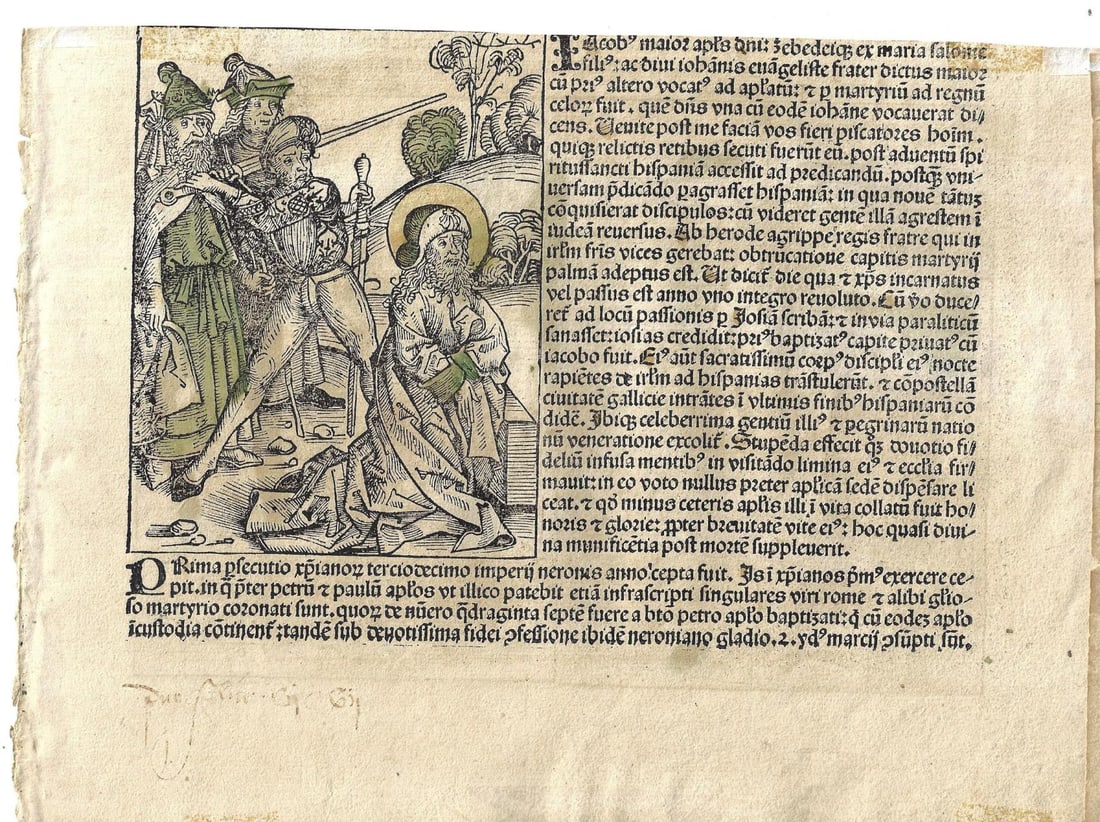 IAcobꝰ maior apl̄s dn̄i: zebedeiqꝫ ex maria salome
filiꝰ: ac divi iohānis evāgeliste frater dictus maior
cū priꝰ altero vocatꝰ ad apl̄atū: ⁊ ꝑ martyriū ad regnū
celoꝝ fuit. quē dn̄s vna cū eodē iohāne vocauerat di⸗
cens. Uenite post me faciā vos fieri piscatores hoīm.
quiqꝫ relictis retibus secuti fuerūt eū. post aduentū spi
ritussancti hispaniā accessit ad predicandū. postqꝫ vni⸗
uersam p̄dicādo ꝑagrasset hispaniā: in qua nouē tātuꝫ
cōquisierat discipulos: cū videret gentē illā agrestem ī
iudeā reuersus. Ab herode agrippe regis fratre qui in
irlm̄ fr̄is vices gerebat: obtrūcatioue capitis martyrij
palmā adeptus est. Ut dicit̄ die qua ⁊ xp̄s incarnatus
vel passus est anno vno integro reuoluto. Cū v̄o duce⸗
ret̄ ad locū passionis ꝑ Josiā scribā: ⁊ in via paraliticū
sanasset: iosias credidit: priꝰ baptizatꝰ capite priuatꝰ cū
iacobo fuit. Eiꝰ aūt sacratissimū corpꝰ discipl̄i eiꝰ nocte
rapiētes de irlm̄ ad hispanias trāstulerūt. ⁊ cōpostellā
ciuitatē gallicie intrātes ī vltimis finibꝰ hispaniarū cō
didē. Ibiqꝫ celeberrima gentiū illiꝰ ⁊ ꝑegrinarū natio
nū veneratione excolit̄. Stupēda effecit qꝫ deuotio fi⸗
deliū infusa mentibꝰ in visitādo limina eiꝰ ⁊ eccl̄ia fir⸗
mauit: in eo voto nullus preter apl̄icā sedē dispēsare li
ceat. ⁊ qd̄ minus ceteris apl̄is illi ī vita collatū fuit ho⸗
noris ⁊ glorie: ꝓpter breuitatē vite eiꝰ: hoc quasi diui⸗
na munificētia post mortē suppleuerit.
PRima ꝑsecutio xp̄ianoꝝ terciodecimo imperij neronis anno cepta fuit. Is ī xp̄ianos p̄mꝰ exercere ce⸗
pit. in q̄ p̄ter petrū ⁊ paulū apl̄os vt illico patebit etiā infrascripti singulares viri rome ⁊ alibi gl̄io⸗
so martyrio coronati sunt. quoꝝ de nūero q̄draginta septē fuere a bt̄o petro apl̄o baptizati: q̄ cū eodeꝫ apl̄o
īcustodia cōtinent̄: tandē sub deuotissima fidei ꝯfessione ibidē neroniano gladio. 2. ydꝰ marcij ꝯsūpti sūt.